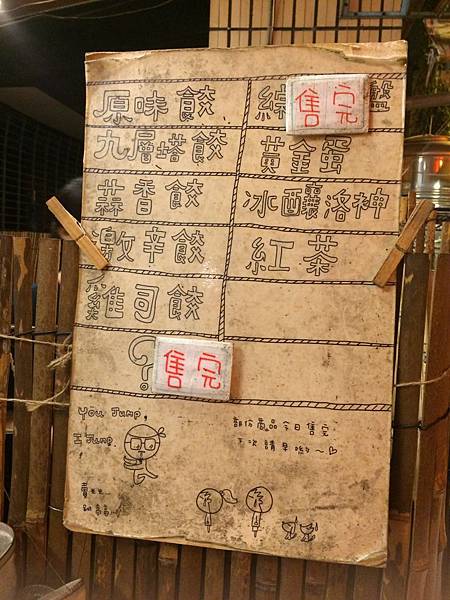 原味餃
綜
售完
盤
九層塔餃
黃金蛋
蒜香餃
冰釀洛神
激辛餃
紅茶
雞司餃
?
售完
You Jump,
I Jump.
部份商品今日售完
下次請早喲~♡